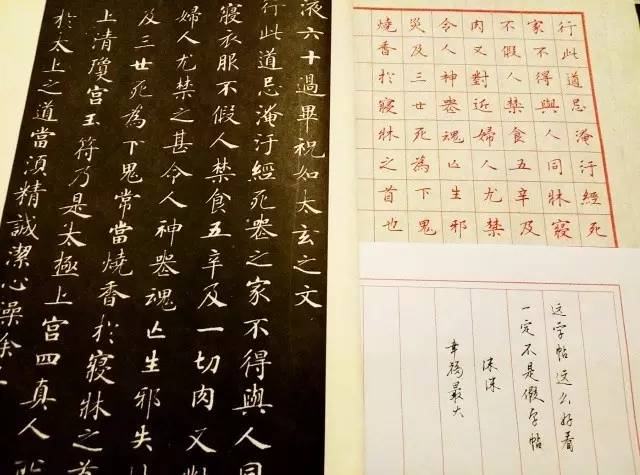 液六十過畢祝如太玄之文
行此道忌淹汙經死喪之家不得與人同
寢衣服不假人禁食五辛及一切肉又對
婦人尤禁之甚令人神喪魂亡生邪失
及三世死為下鬼常當燒香於寢牀之首
上清瓊宮玉符乃是太極上宮四真人所
於太上之道當須精誠潔心澡除
行此道忌淹汙經死
家不得與人同牀寢
不假人禁食五辛及
肉又對近婦人尤禁
令人神喪魂亡生邪
災及三世死為下鬼
燒香於寢牀之首也
这字帖这么好看
一定不是假字帖
沫沫
幸福最大